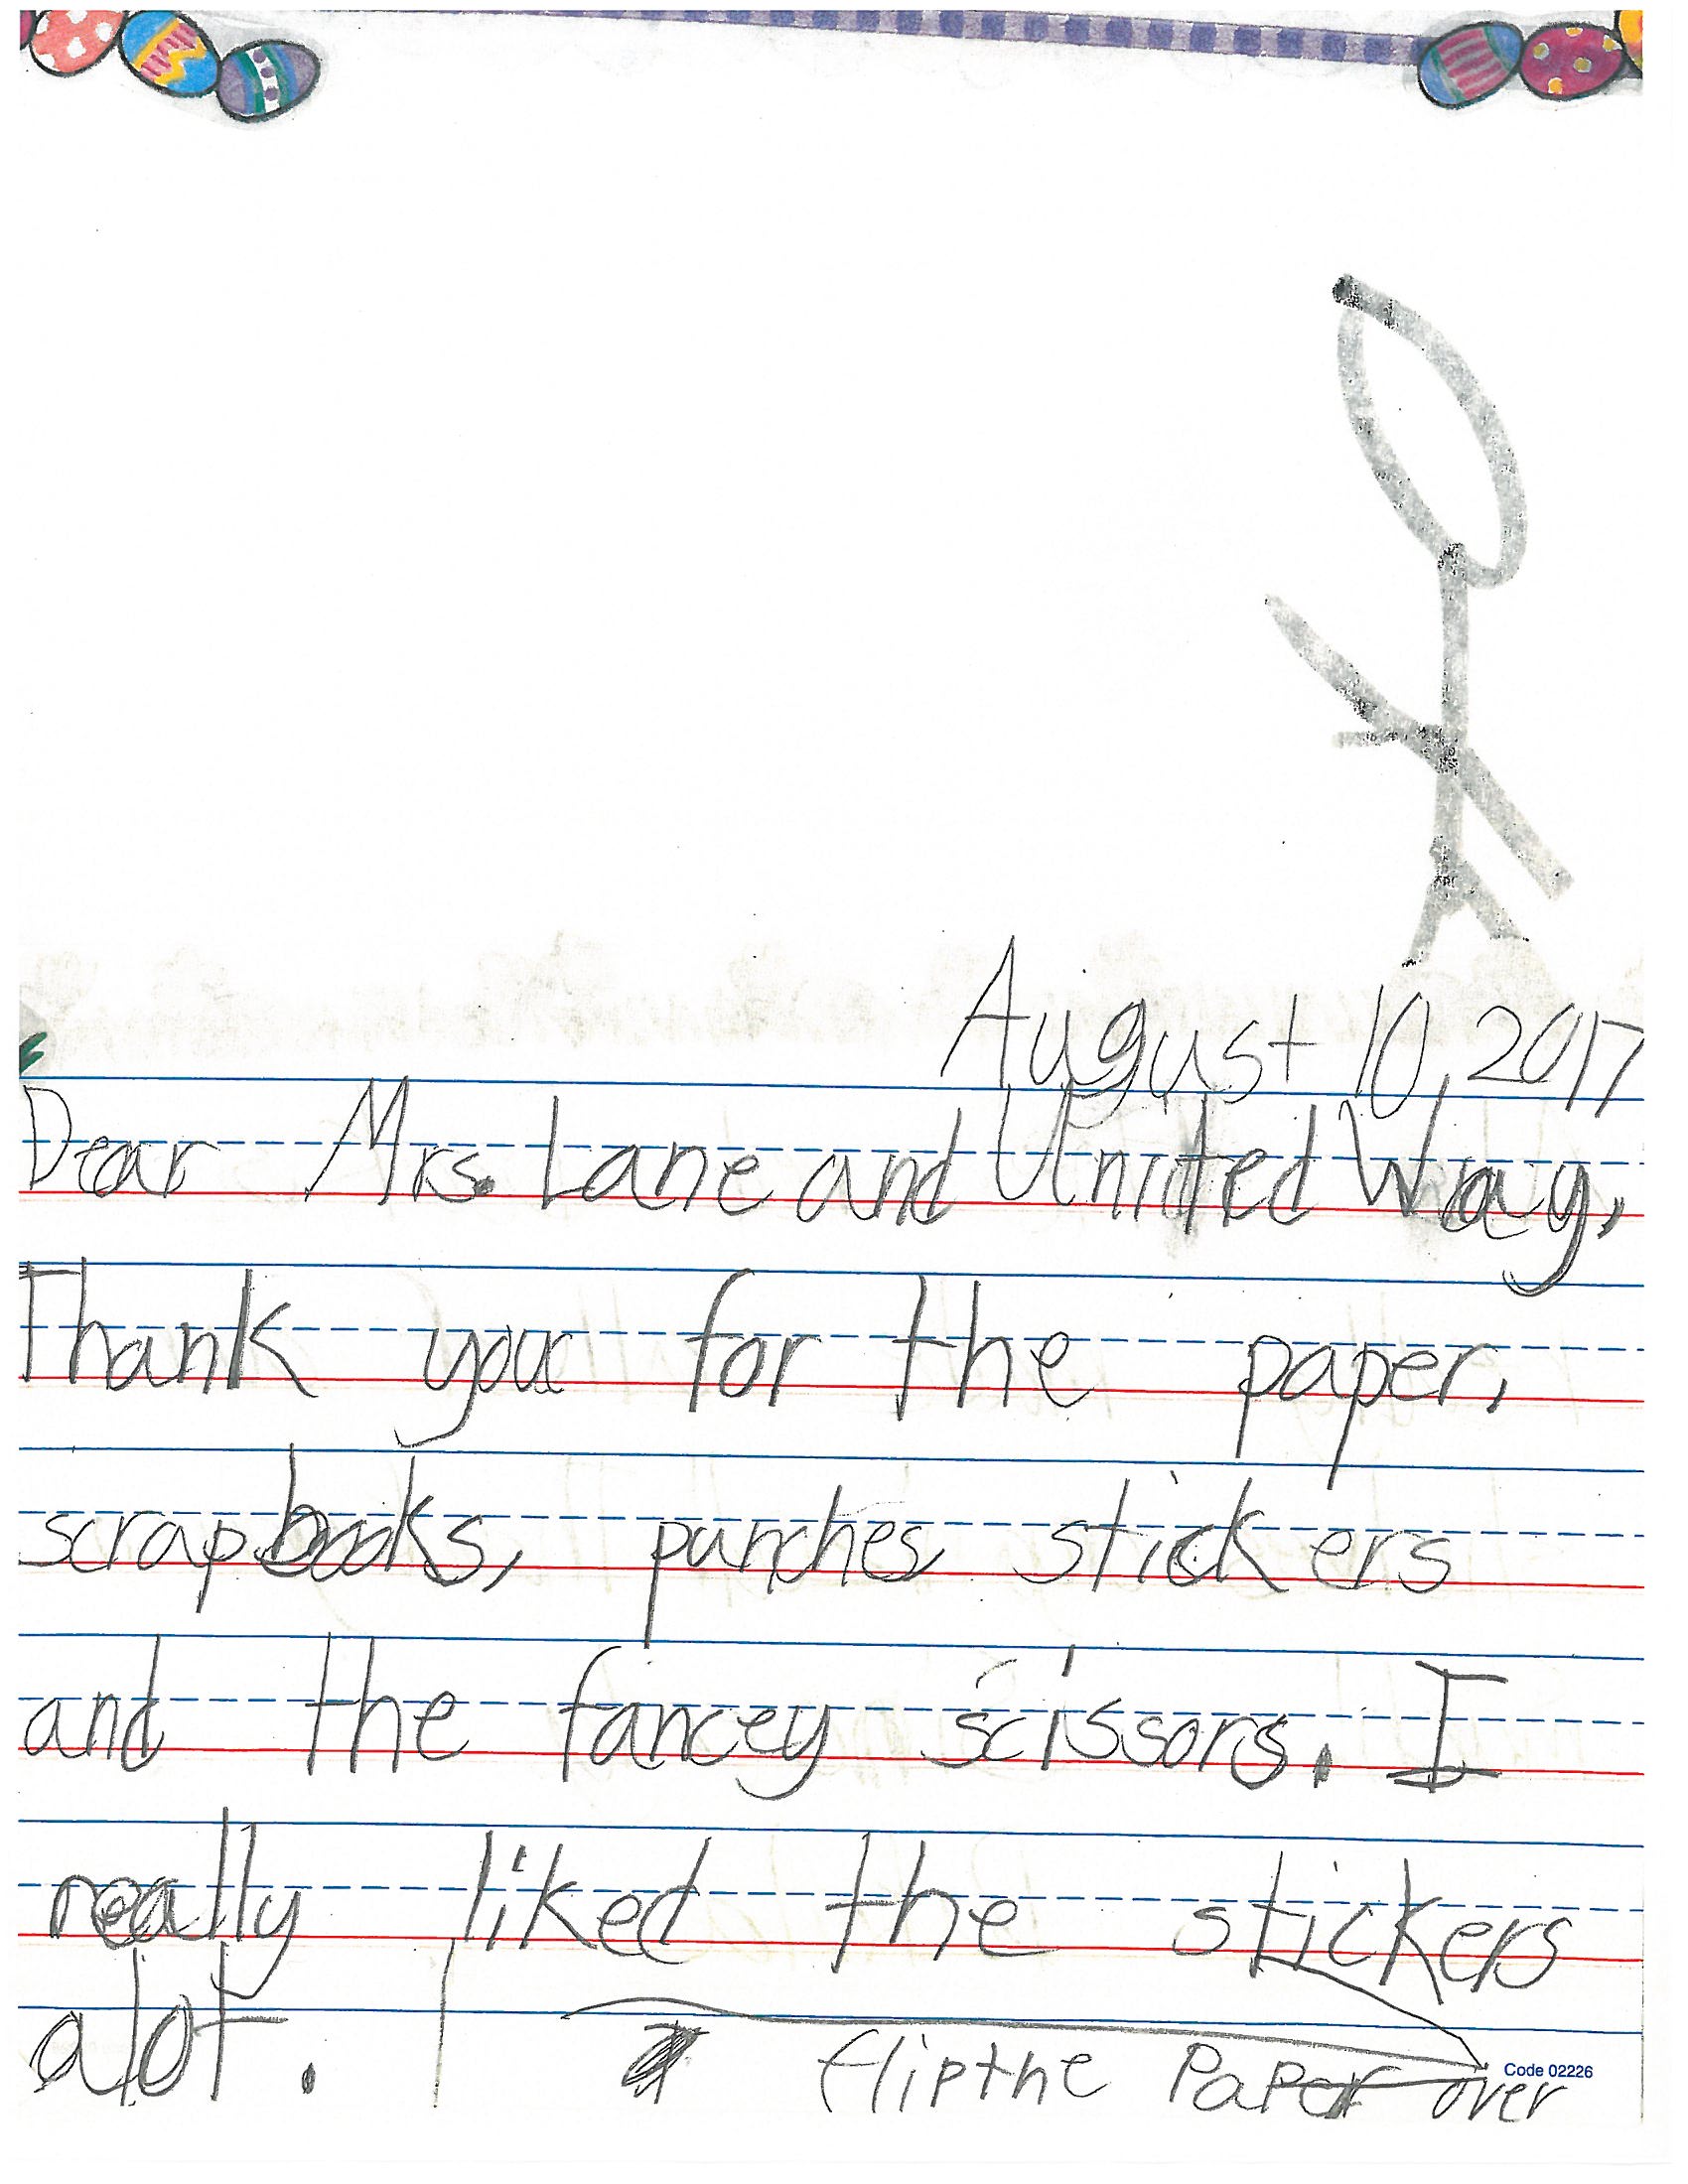 August 10, 2017
Dear Mrs. Lane and United Way,
Thank you for the paper,
scrapbooks, punches, stickers
and the fancey scissors. I
really liked the stickers
alot.
flip the Paper over
Code 02226